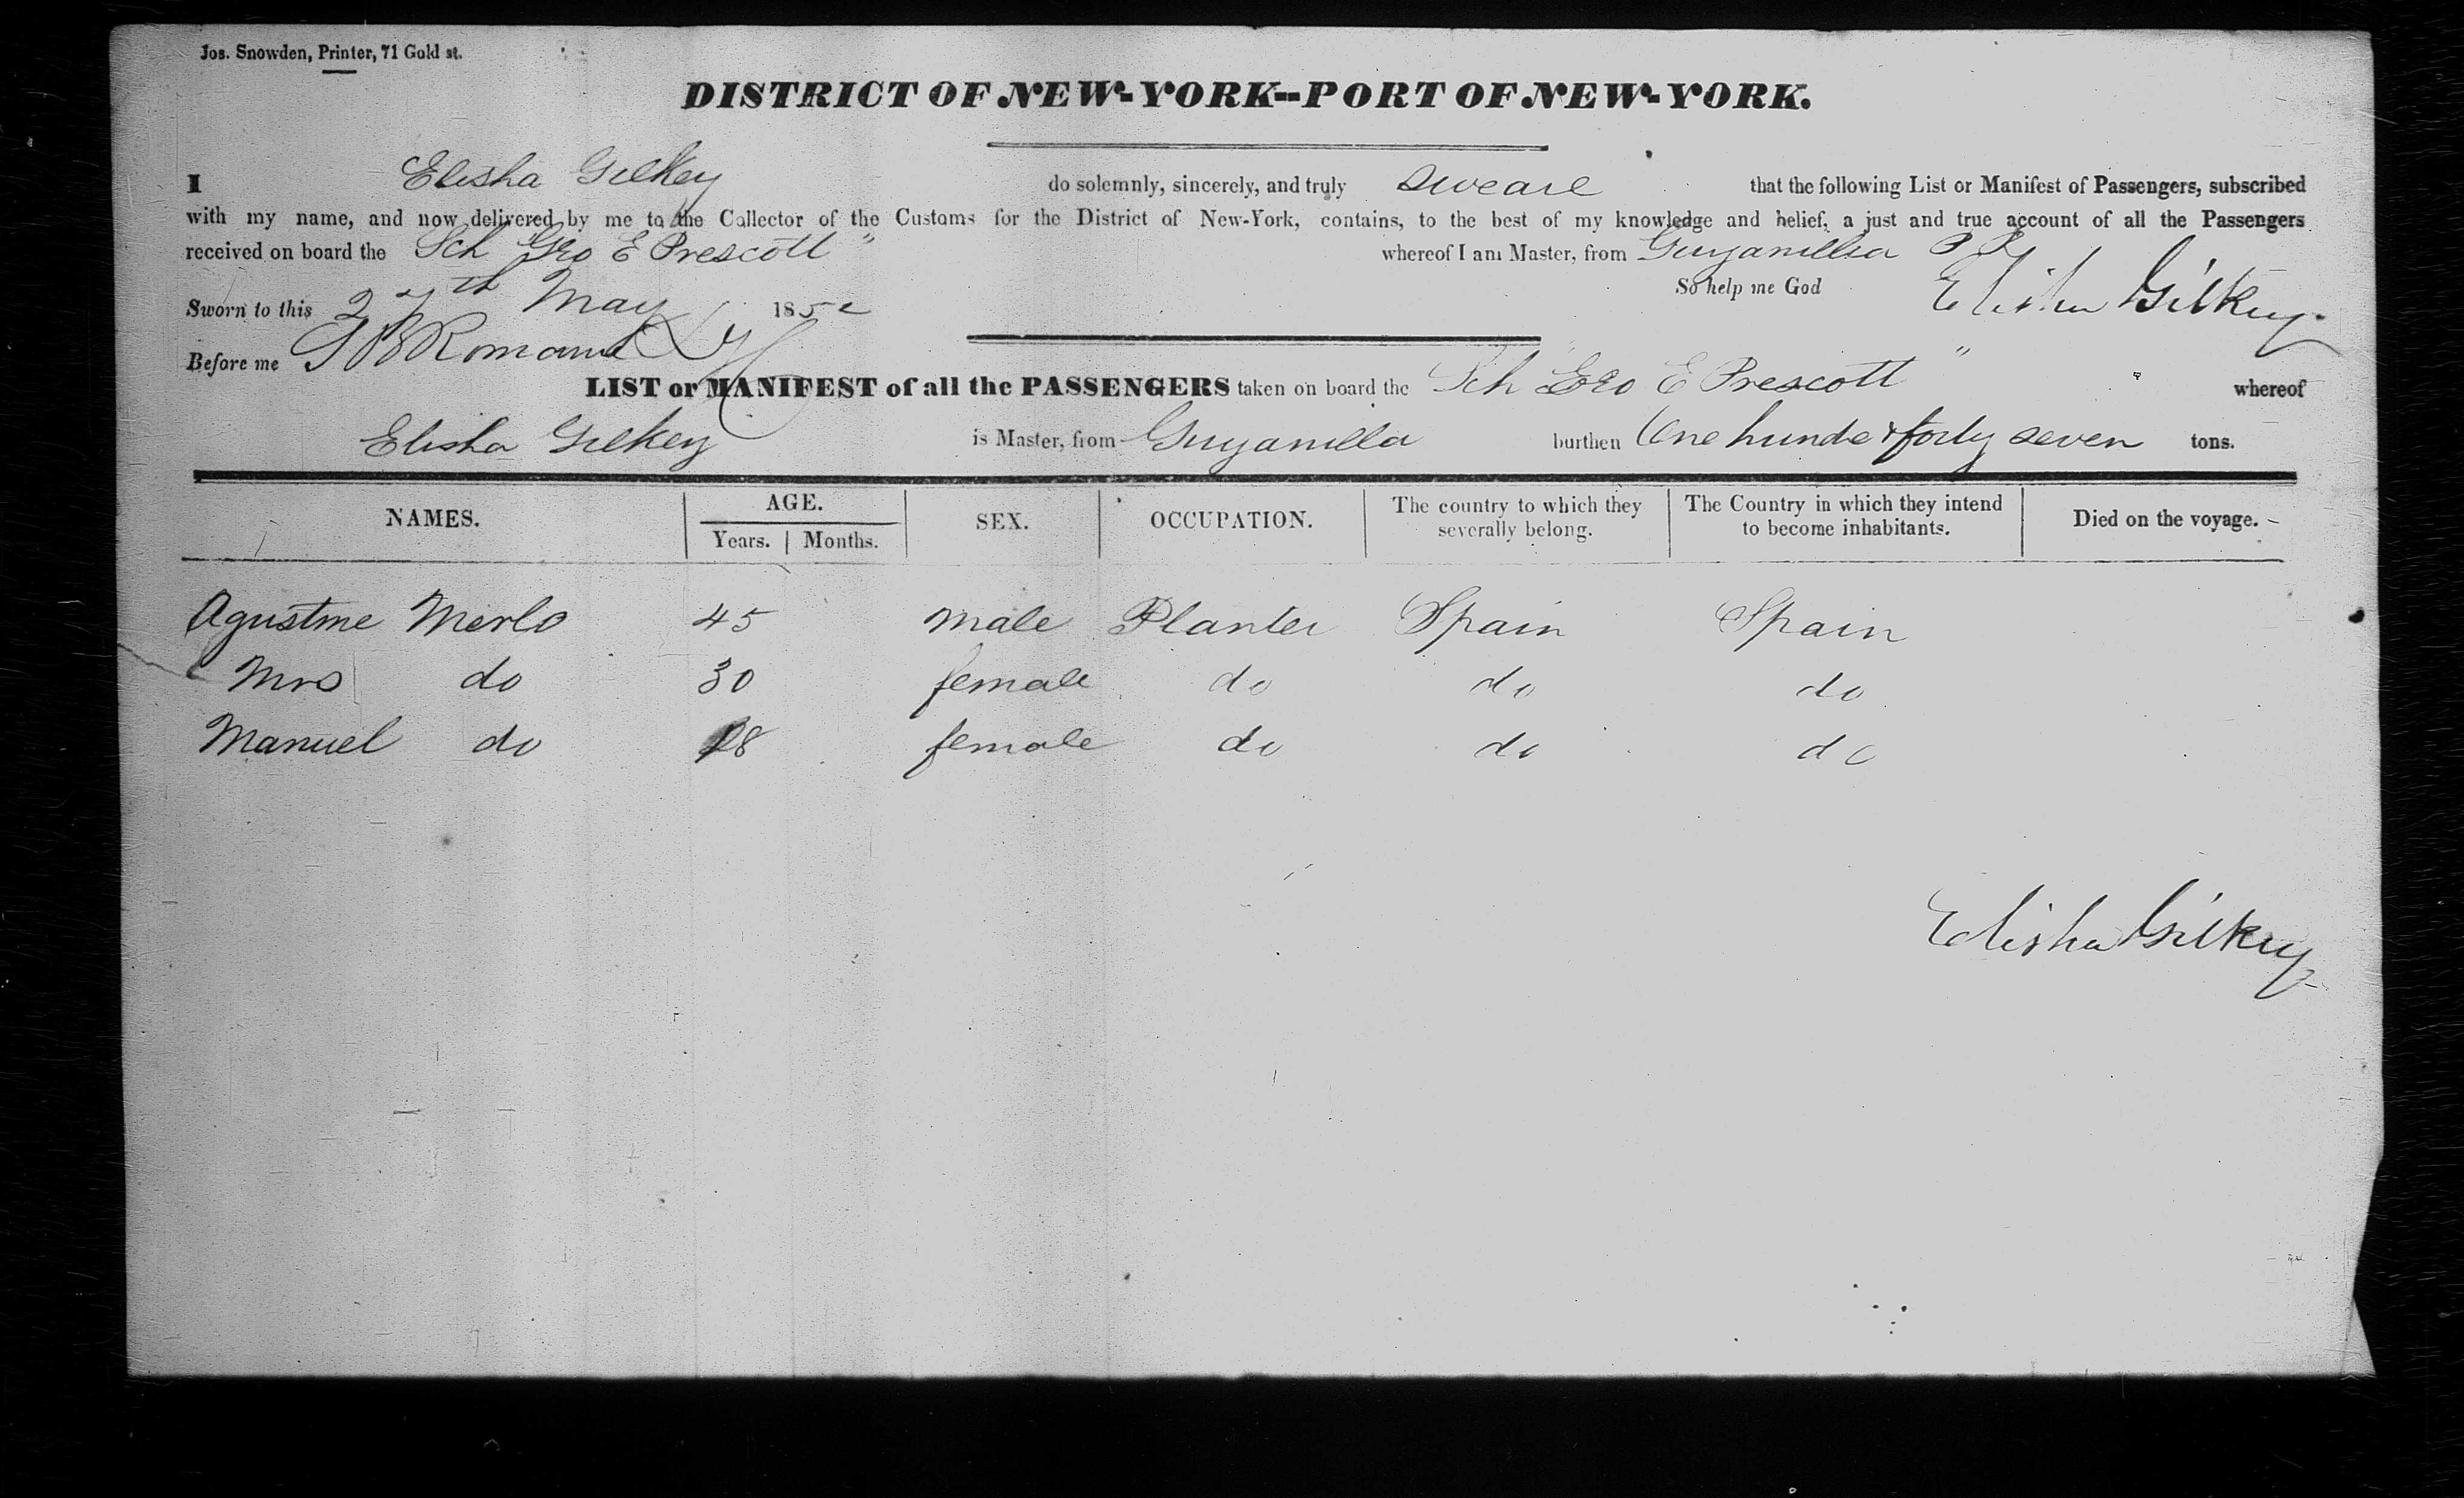 Jos. Snowden, Printer, 71 Gold st.
DISTRICT OF NEW-YORK--PORT OF NEW-YORK.
I Elisha Gilkey do solemnly, sincerely, and truly sweare that the following List or Manifest of Passengers, subscribed
with my name, and now delivered by me to the Collector of the Customs for the District of New-York, contains, to the best of my knowledge and belief, a just and true account of all the Passengers
received on board the Sch Geo E Prescott" whereof I am Master, from Guyanilla P R
So help me God Elisha Gilkey
Sworn to this 27th May 1852
Before me
LIST or MANIFEST of all the PASSENGERS taken on board the Sch "Geo E Prescott" whereof
Elisha Gilkey is Master, from Guyanilla burthen One hunde & forty seven tons.
NAMES. AGE. Years. Months. SEX. OCCUPATION. The country to which they severally belong. The Country in which they intend to become inhabitants. Died on the voyage.
Agustine Merlo 45 male Planter Spain Spain
Mrs do 30 female do do do
Manuel do 18 female do do do
Elisha Gilkey